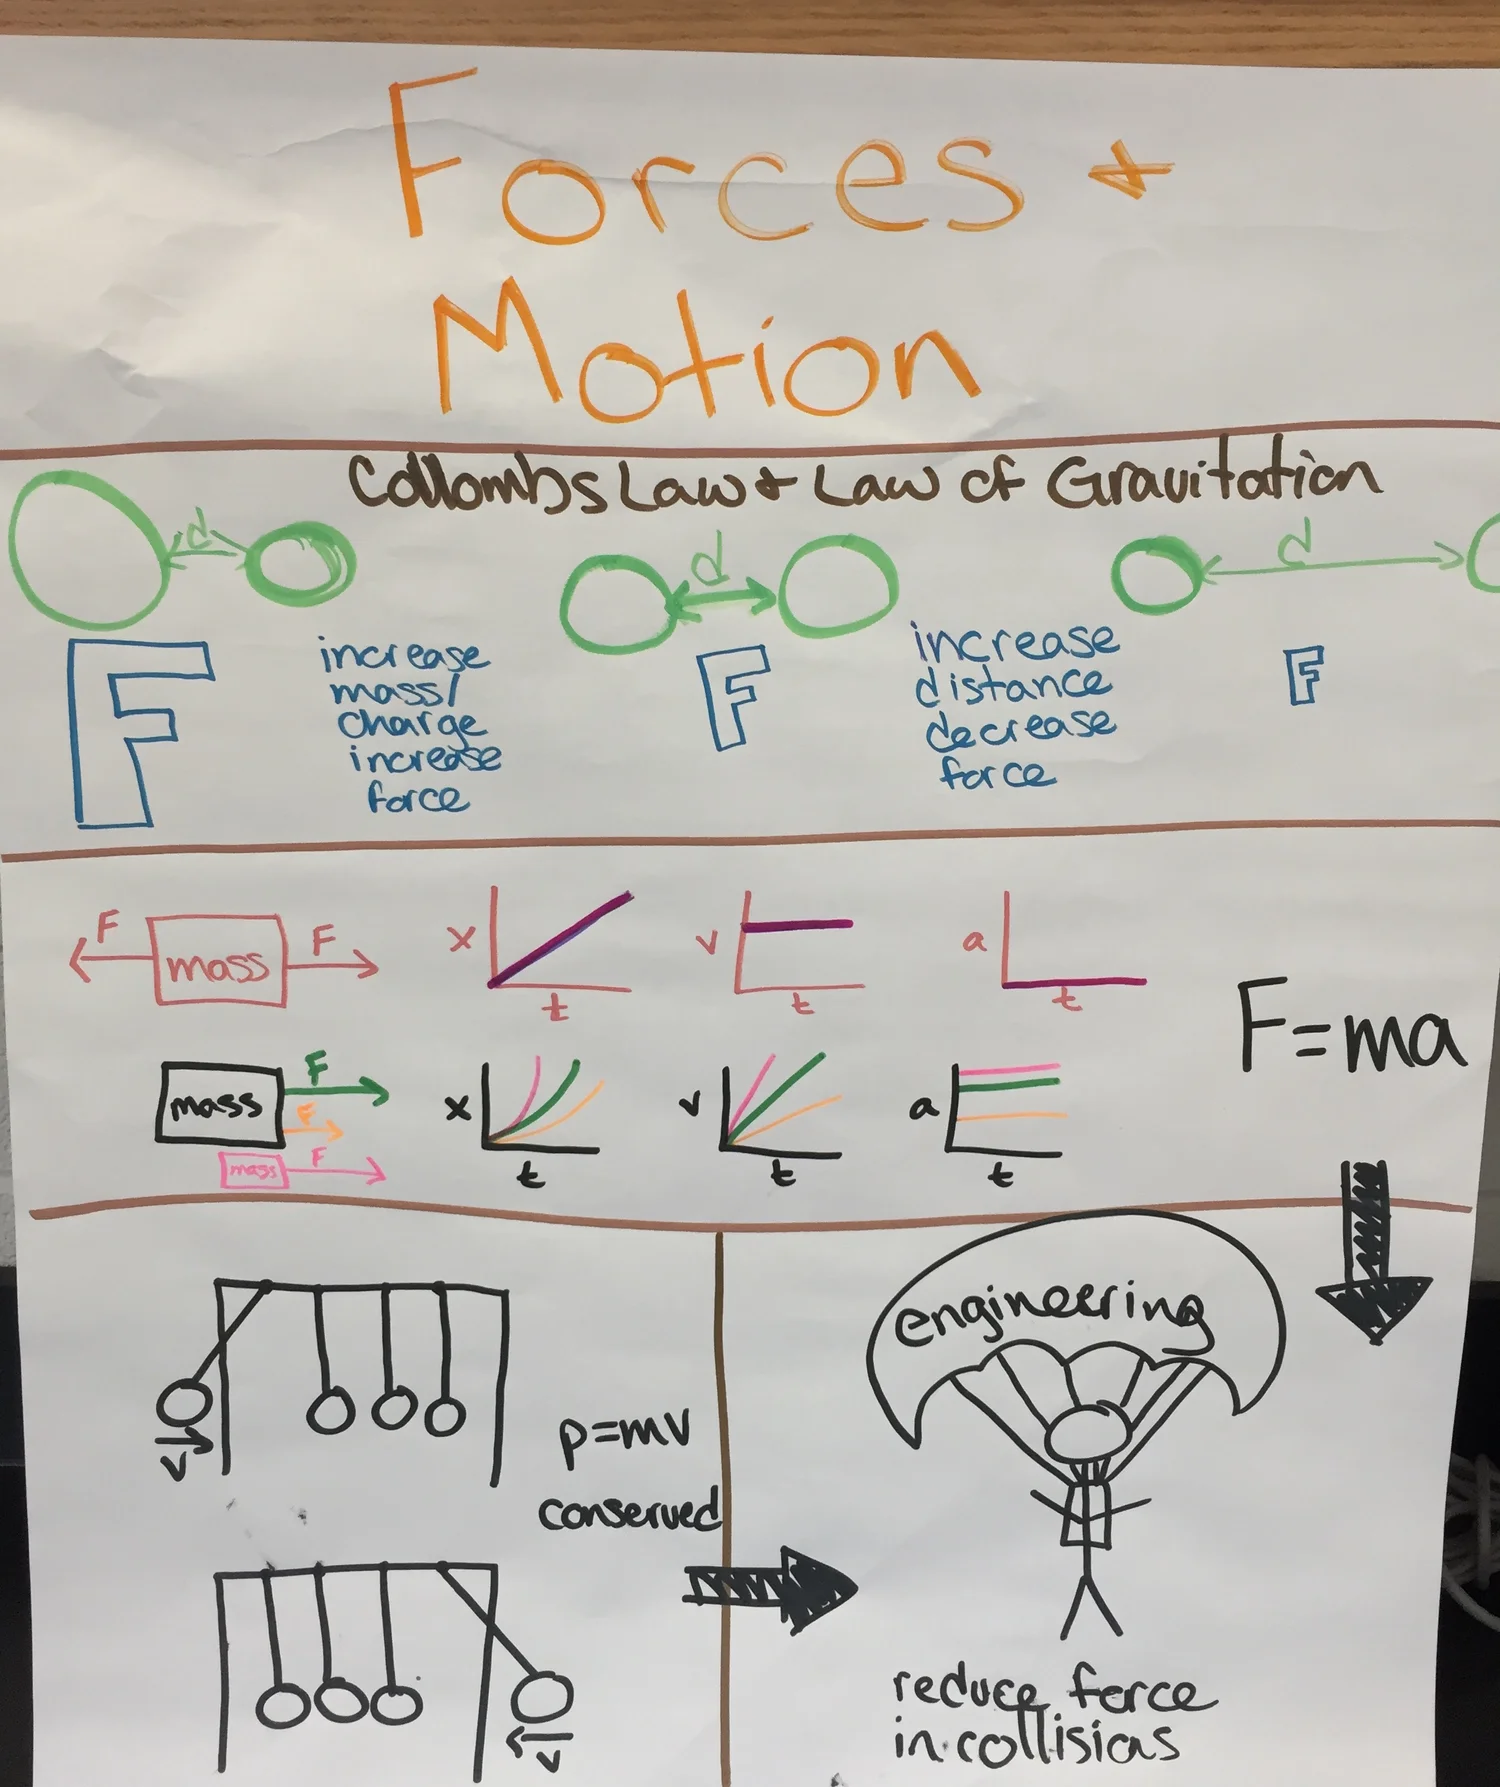 Forces +
Motion
Collombs Law + Law of Gravitation
d
d
d
F
increase
mass/
charge
increase
force
F
increase
distance
decrease
force
F
F
mass
F
x
t
v
t
a
t
F=ma
mass
F
F
mass
F
x
t
v
t
a
t
v
p=mv
conserved
v
engineering
reduce force
in collisions